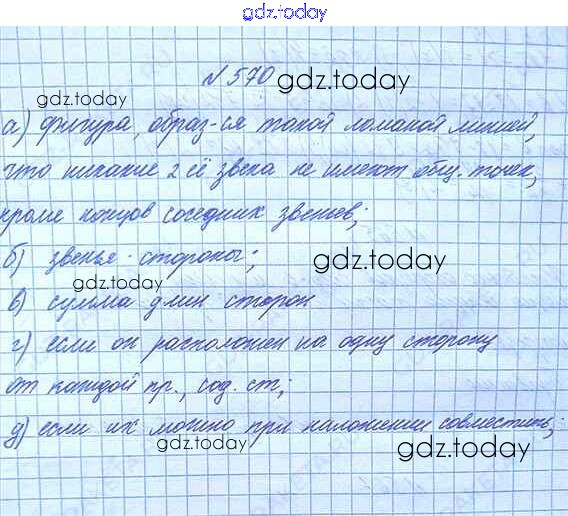 gdz.today
№570 gdz.today
gdz.today
а) фигура, образ-ся такой ломаной линией,
что никакие 2 её звена не имеют общ. точек,
кроме концов соседних звеньев;
б) звенья - стороны; gdz.today
gdz.today
в) сумма длин сторон
г) если он расположен на одну сторону
от каждой пр., сод. ст;
д) если их можно при наложении совместить;
gdz.today gdz.today